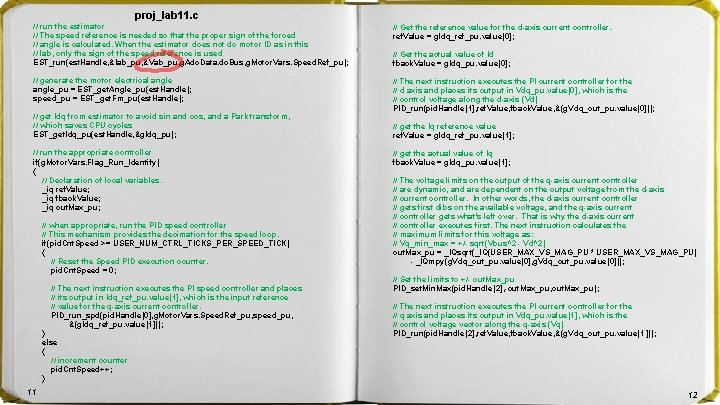 proj_lab11. c
// run the estimator
// The speed reference is needed so that the proper sign of the forced
// angle is calculated. When the estimator does not do motor ID as in this
// lab, only the sign of the speed reference is used
EST_run(estHandle, &Iab_pu, &Vab_pu, gAdcData.dcBus, gMotorVars.SpeedRef_pu);
// generate the motor electrical angle
angle_pu = EST_getAngle_pu(estHandle);
speed_pu = EST_getFm_pu(estHandle);
// get Idq from estimator to avoid sin and cos, and a Park transform,
// which saves CPU cycles
EST_getIdq_pu(estHandle, &gIdq_pu);
// run the appropriate controller
if(gMotorVars.Flag_Run_Identify)
{
// Declaration of local variables.
_iq refValue;
_iq fbackValue;
_iq outMax_pu;
// when appropriate, run the PID speed controller
// This mechanism provides the decimation for the speed loop.
if(pidCntSpeed >= USER_NUM_CTRL_TICKS_PER_SPEED_TICK)
{
// Reset the Speed PID execution counter.
pidCntSpeed = 0;
// The next instruction executes the PI speed controller and places
// its output in Idq_ref_pu.value[1], which is the input reference
// value for the q-axis current controller.
PID_run_spd(pidHandle[0], gMotorVars.SpeedRef_pu, speed_pu,
&(gIdq_ref_pu.value[1]));
}
else
{
// increment counter
pidCntSpeed++;
}
11
// Get the reference value for the d-axis current controller.
refValue = gIdq_ref_pu.value[0];
// Get the actual value of Id
fbackValue = gIdq_pu.value[0];
// The next instruction executes the PI current controller for the
// d axis and places its output in Vdq_pu.value[0], which is the
// control voltage along the d-axis (Vd)
PID_run(pidHandle[1], refValue, fbackValue, &(gVdq_out_pu.value[0]));
// get the Iq reference value
refValue = gIdq_ref_pu.value[1];
// get the actual value of Iq
fbackValue = gIdq_pu.value[1];
// The voltage limits on the output of the q-axis current controller
// are dynamic, and are dependent on the output voltage from the d-axis
// current controller. In other words, the d-axis current controller
// gets first dibs on the available voltage, and the q-axis current
// controller gets what's left over. That is why the d-axis current
// controller executes first. The next instruction calculates the
// maximum limits for this voltage as:
// Vq_min_max = +/- sqrt(Vbus^2 - Vd^2)
outMax_pu = _IQsqrt(_IQ(USER_MAX_VS_MAG_PU * USER_MAX_VS_MAG_PU)
- _IQmpy(gVdq_out_pu.value[0], gVdq_out_pu.value[0]));
// Set the limits to +/- outMax_pu
PID_setMinMax(pidHandle[2], -outMax_pu, outMax_pu);
// The next instruction executes the PI current controller for the
// q axis and places its output in Vdq_pu.value[1], which is the
// control voltage vector along the q-axis (Vq)
PID_run(pidHandle[2], refValue, fbackValue, &(gVdq_out_pu.value[1]));
12